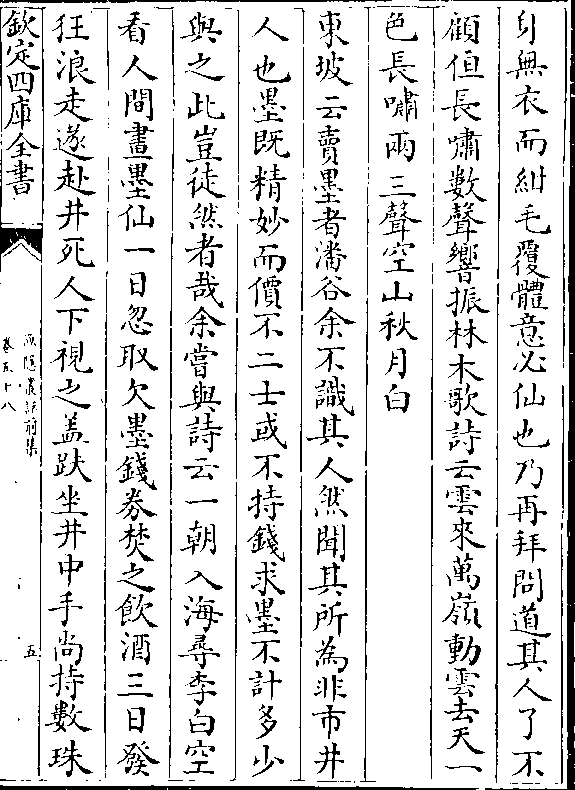 身無衣而紺毛覆體意必仙也乃再拜問道其人了不
顧但長嘯數聲響振林木歌詩云雲來萬嶺動雲去天一
色長嘯兩三聲空山秋月白
東坡云賣墨者潘谷余不識其人然聞其所為非市井
人也墨既精妙而價不二士或不持錢求墨不計多少
與之此豈徒然者哉余嘗與詩云一朝入海尋李白空
看人間畫墨仙一日忽取欠墨錢券焚之飲酒三日發
狂浪走遂赴井死人下視之蓋趺坐井中手尚持數珠
欽定四庫全書
漁隱叢話前集
卷五十八
五